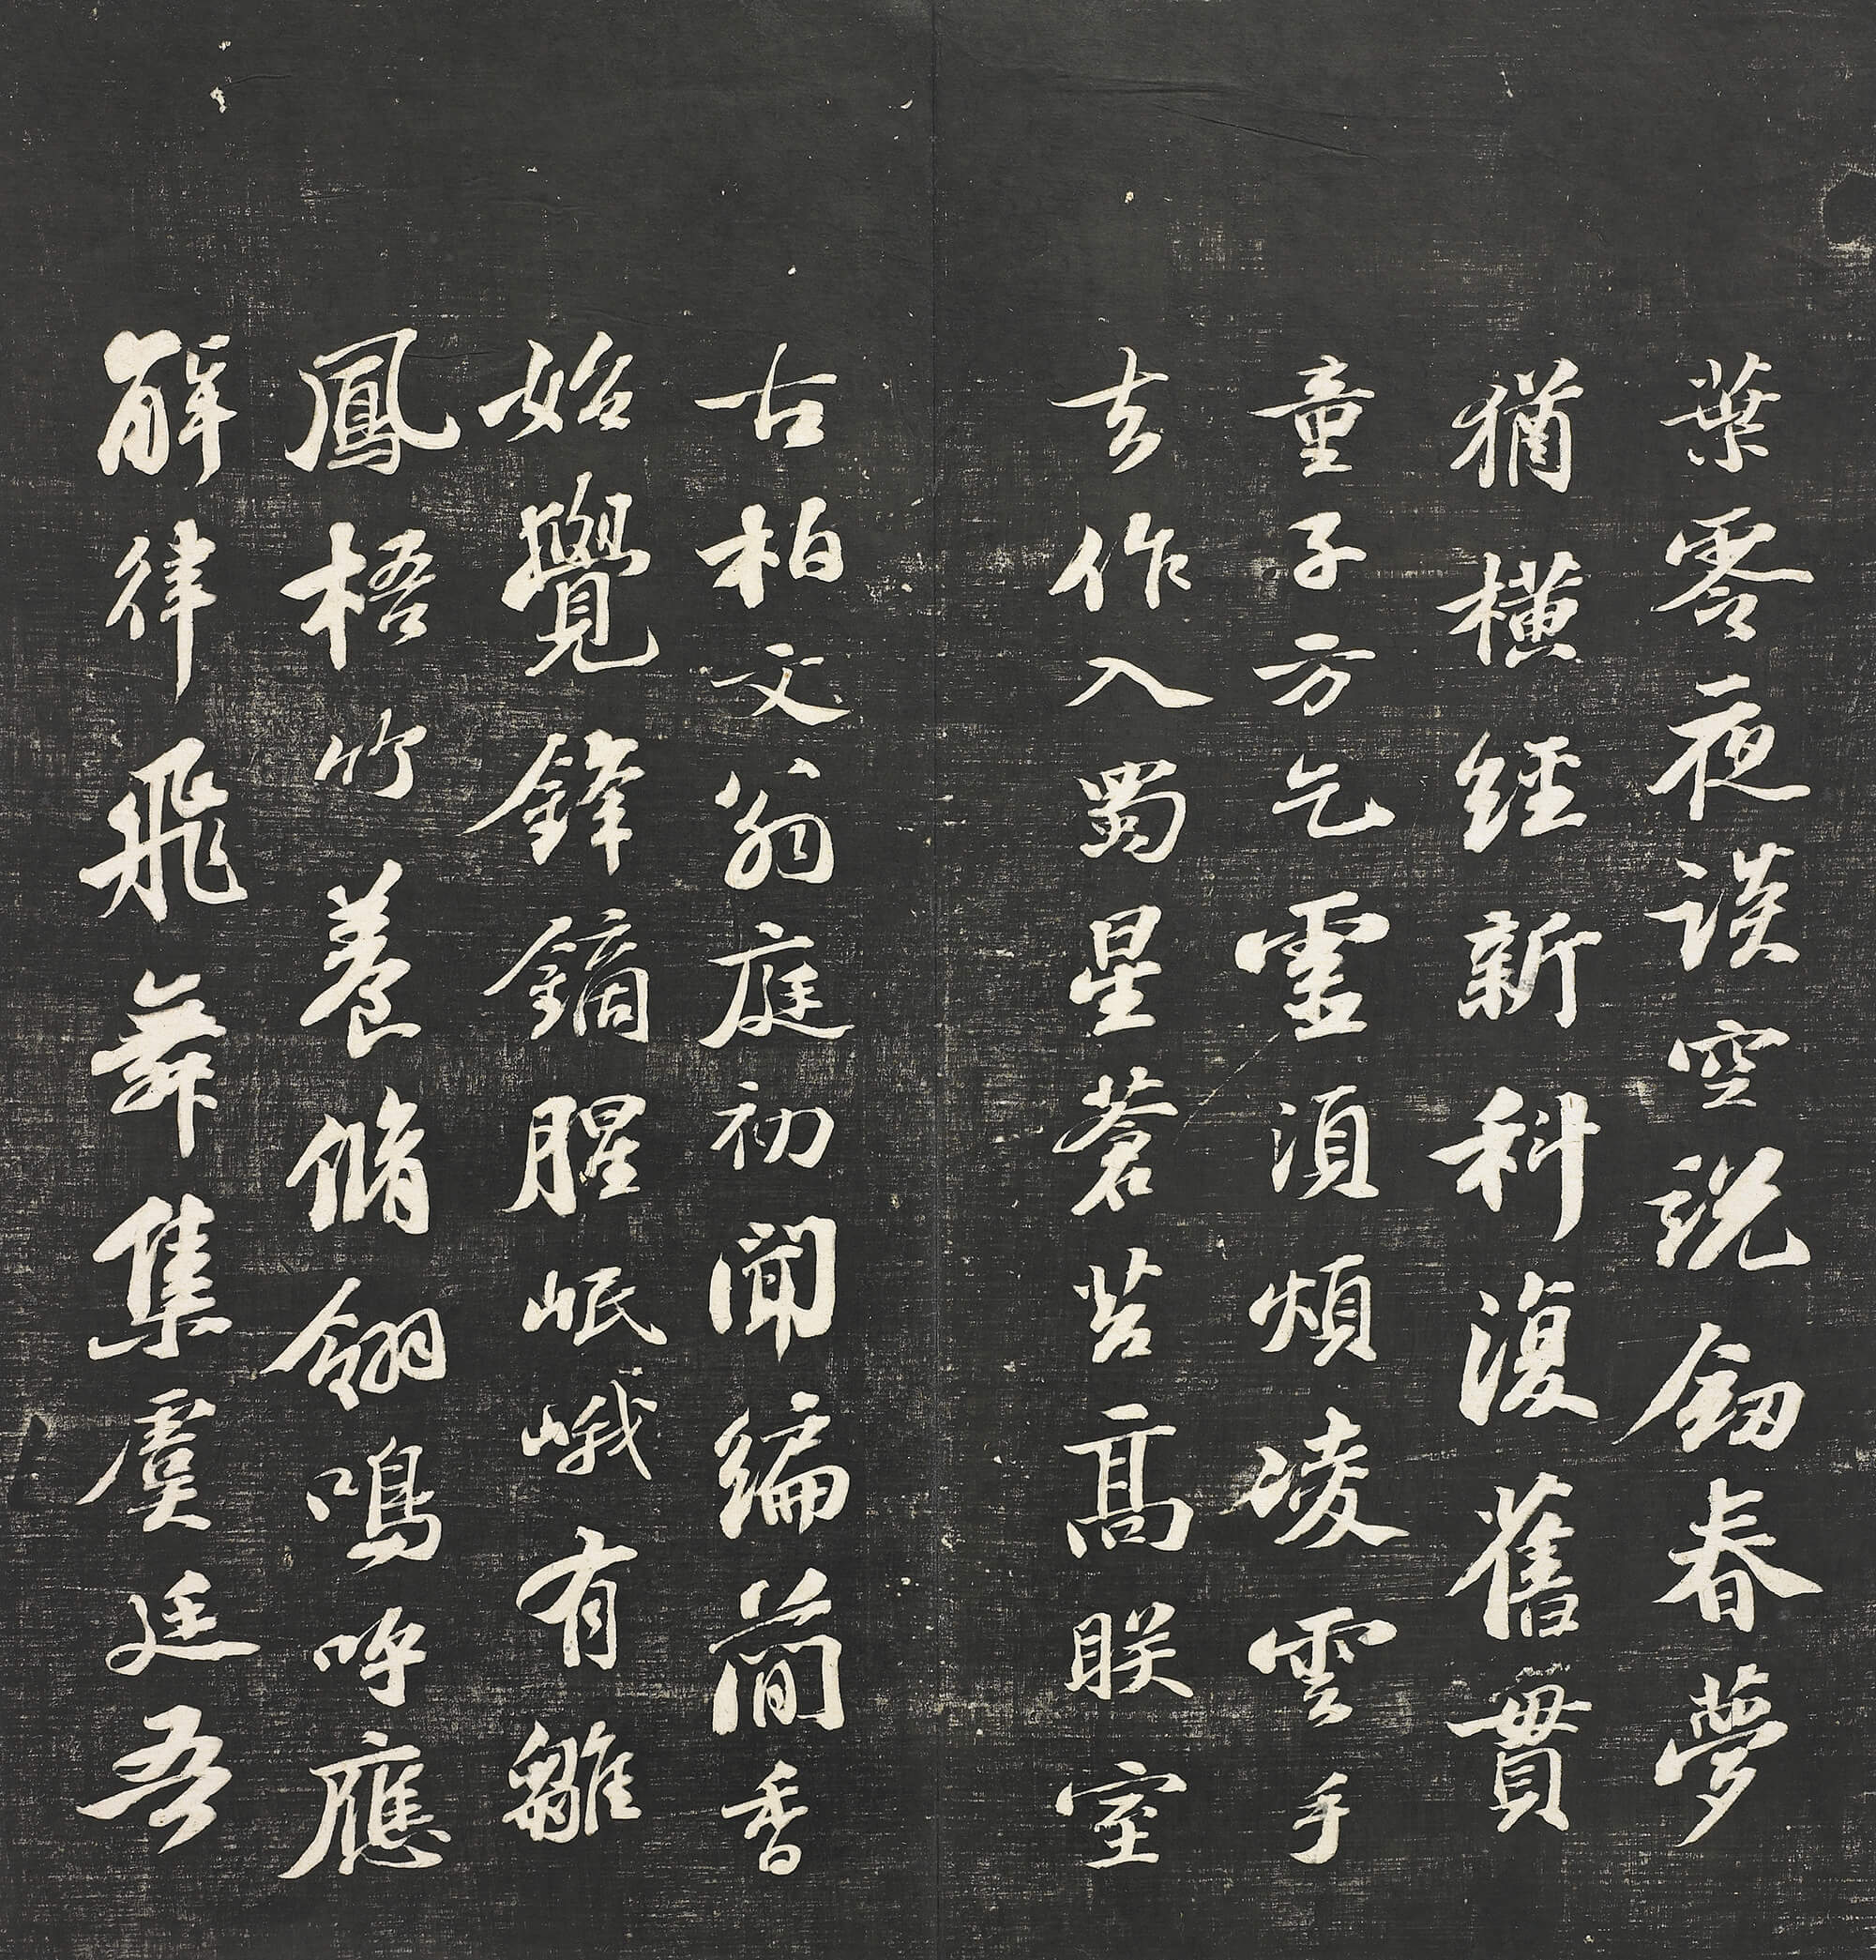 葉零夜談空說釼春夢
猶橫經新科復舊貫
童子方乞靈湏煩凌雲手
去作入蜀星蒼苔高眹室
古柏文翁庭初聞編簡香
始覺鋒鏑腥岷峨有雛
鳳梧竹養脩翎鳴呼應
觧律飛舞集虞廷吾